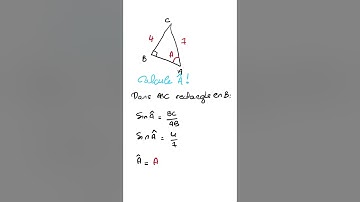 C
4
7
B
A
A
Calcule Â!
Dans ABC rectangle en B:
Sin Â = BC/AB
Sin Â = 4/7
Â = A